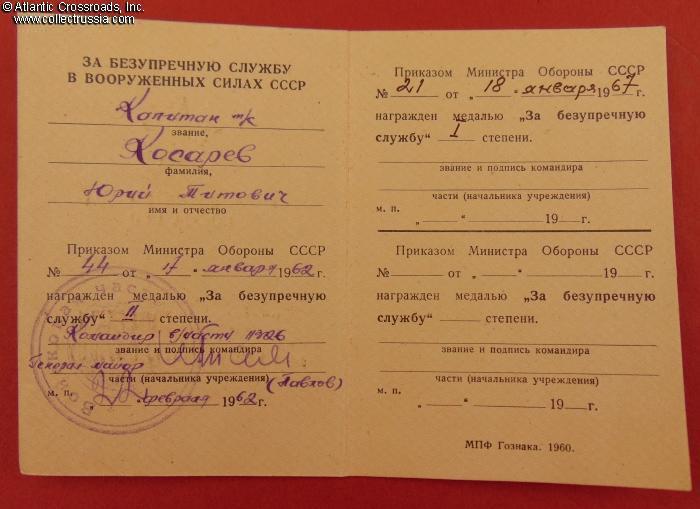 © Atlantic Crossroads, Inc.
www.collectrussia.com
ЗА БЕЗУПРЕЧНУЮ СЛУЖБУ
В ВООРУЖЕННЫХ СИЛАХ СССР
Капитан т/к
звание,
Косарев
фамилия,
Юрий Титович
имя и отчество
Приказом Министра Обороны СССР
№ 44 от „ 17 " января 1962 г.
награжден медалью „За безупречную
службу" II степени.
Командир в/части
звание и подпись командира
Генерал-майор
части (начальника учреждения) (Павлов)
м. п. „ " февраля 1962 г.
Приказом Министра Обороны СССР
№ 21 от „ 18 " января 1967 г.
награжден медалью „За безупречную
службу" I степени.
звание и подпись командира
части (начальника учреждения)
м. п. „ " 19 г.
Приказом Министра Обороны СССР
№ от „ " 19 г.
награжден медалью „За безупречную
службу" степени.
звание и подпись командира
части (начальника учреждения)
м. п. „ " 19 г.
МПФ Гознака. 1960.